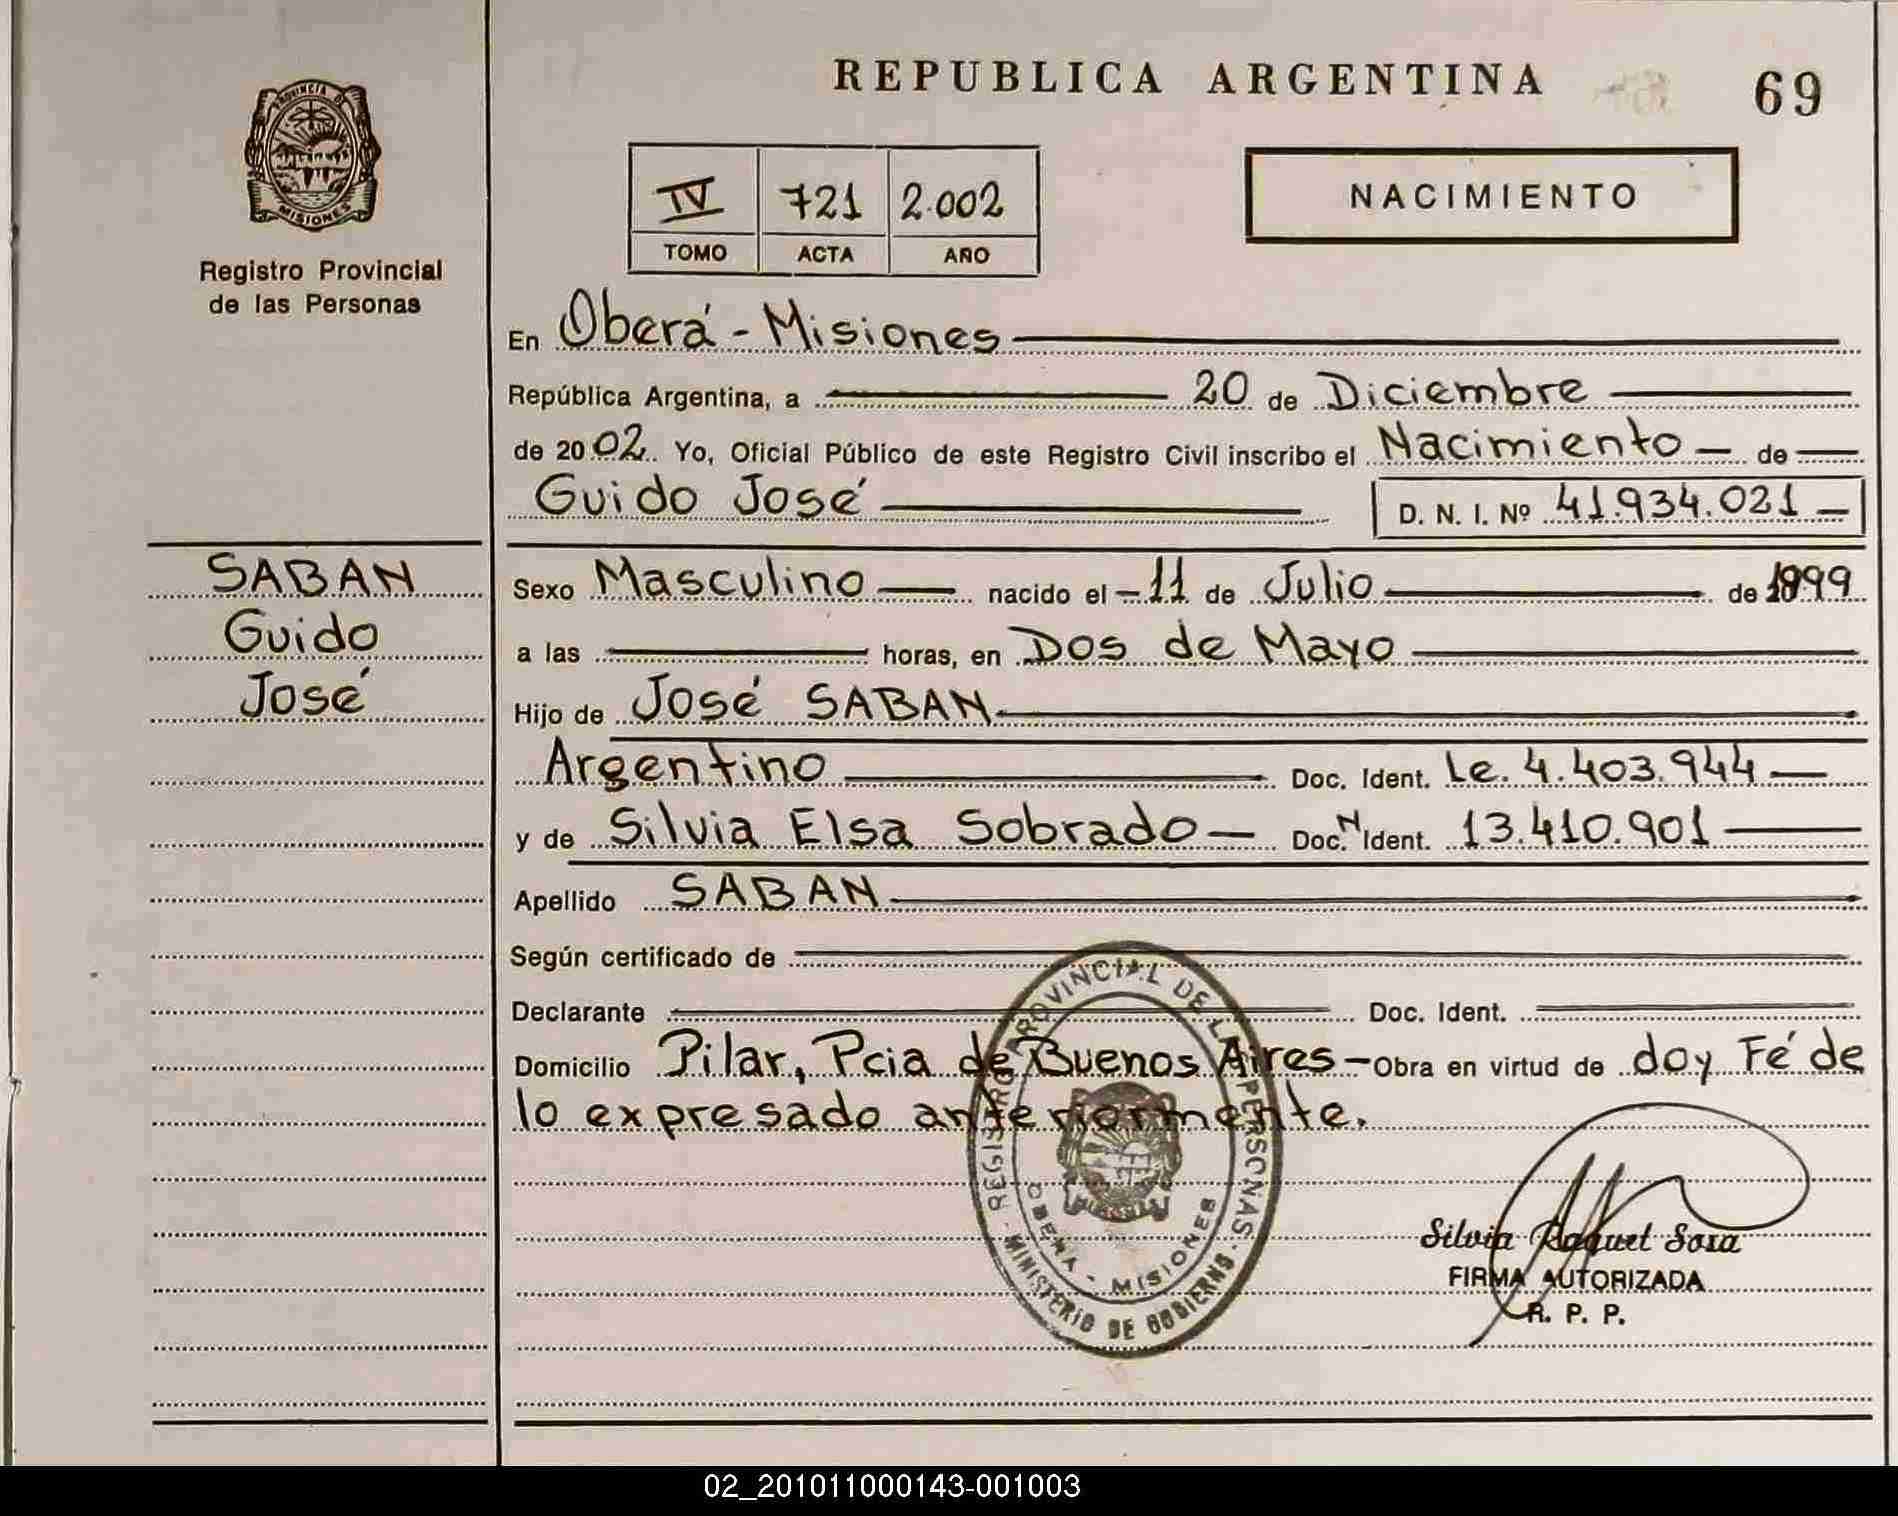 REPUBLICA ARGENTINA
69
PROVINCIA DE
MISIONES
Registro Provincial
de las Personas
IV 721 2.002
TOMO ACTA AÑO
NACIMIENTO
En Oberá - Misiones
República Argentina, a 20 de Diciembre
de 2002. Yo, Oficial Público de este Registro Civil inscribo el Nacimiento de
Guido José D. N. I. Nº 41.934.021
SABAN
Guido
José
Sexo Masculino nacido el 11 de Julio de 1999
a las horas, en Dos de Mayo
Hijo de José SABAN
Argentino Doc. Ident. Le. 4.403.944
y de Silvia Elsa Sobrado Doc. N Ident. 13.410.901
Apellido SABAN
Según certificado de
Declarante Doc. Ident.
Domicilio Pilar, Pcia de Buenos Aires - Obra en virtud de doy Fé de
lo expresado anteriormente.
REGISTRO PROVINCIAL DE LAS PERSONAS
OBERA - MISIONES
MINISTERIO DE GOBIERNO
Silvia Raquel Sosa
FIRMA AUTORIZADA
R. P. P.
02_201011000143-001003